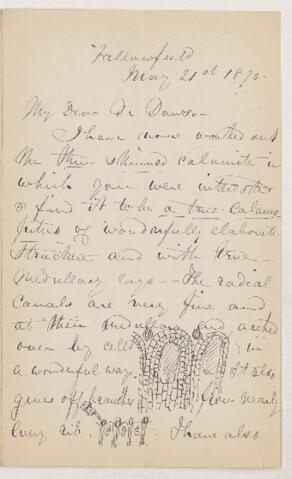 Fallowfield
May 21st 1870-
My Dear Dr Dawson-
I have now worked out
the thin skinned calamite in
which you were interested
& find it to be a true Calamo-
pitus of wonderfully elaborate
structure and with true
medullary rays - The radial
canals are very fine and
at their medullary end arched
over by cells in
a wonderful way. It also
gives off branches from nearly
every rib. I have also